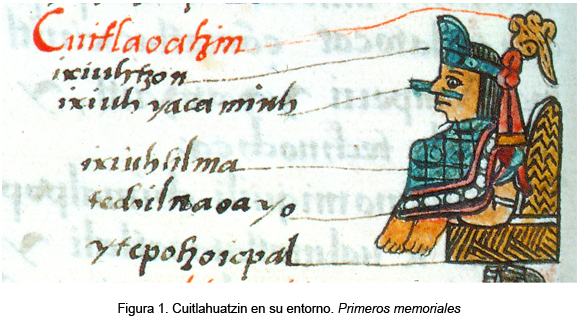 Cuitlaoatzin
ixiuhtzon
ixiuh yaca miuh
ixiuhtilma
techilnaoa yo
ytepotzoicpal
Figura 1. Cuitlahuatzin en su entorno. Primeros memoriales